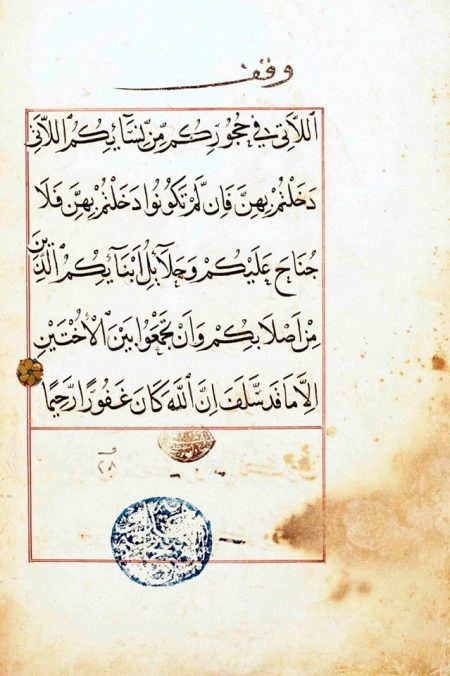 وقف
اللَّاتِي فِي حُجُورِكُم مِّن نِّسَآيِكُمُ اللَّاتِي
دَخَلْتُمْ بِهِنَّ فَإِن لَّمْ تَكُونُوا دَخَلْتُمْ بِهِنَّ فَلَا
جُنَاحَ عَلَيْكُمْ وَحَلَآيِلُ أَبْنَآيِكُمُ الَّذِينَ
مِنْ أَصْلَابِكُمْ وَأَن تَجْمَعُوا بَيْنَ الْأُخْتَيْنِ
إِلَّا مَا قَدْ سَّلَفَ إِنَّ اللَّهَ كَانَ غَفُورًا رَّحِيمًا
٢٨